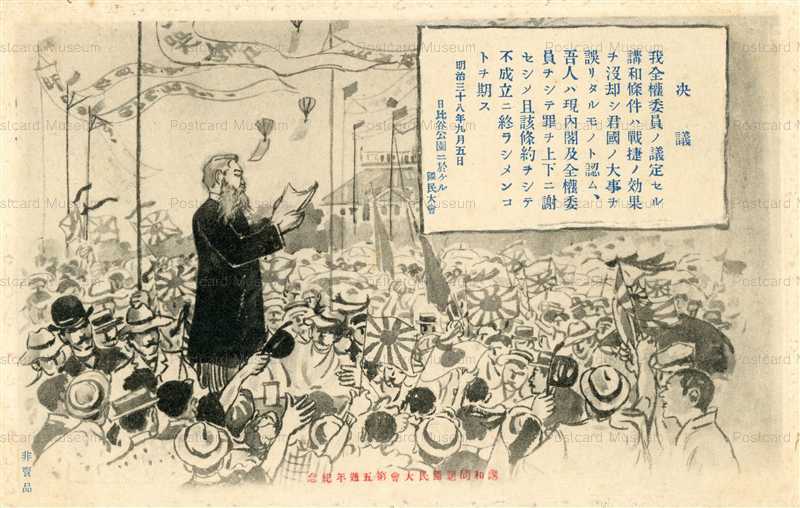 決議
我全權委員ノ議定セル
講和條件ハ戰捷ノ効果
チ沒却シ君國ノ大事チ
誤リタルモノト認ム、
吾人ハ現內閣及全權委
員チシテ罪チ上下ニ謝
セシメ且該條約チシテ
不成立ニ終ラシメンコ
トチ期ス
明治三十八年九月五日
日比谷公園ニ於ケル
國民大會
講和問題國民大會第五週年紀念
非賣品
Postcard Museum